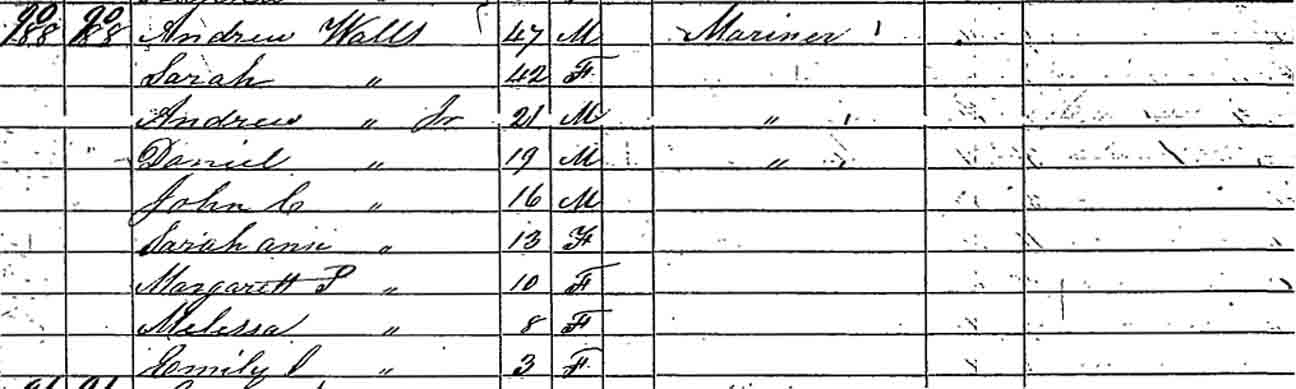 90 90 Andrew Walls 47 M Mariner
188 188
Sarah " 42 F
Andrew " Jr 21 M "
Daniel " 19 M "
John C " 16 M
Sarah ann " 13 F
Margarett P " 10 F
Melessa " 8 F
Emily J " 3 F
91 91